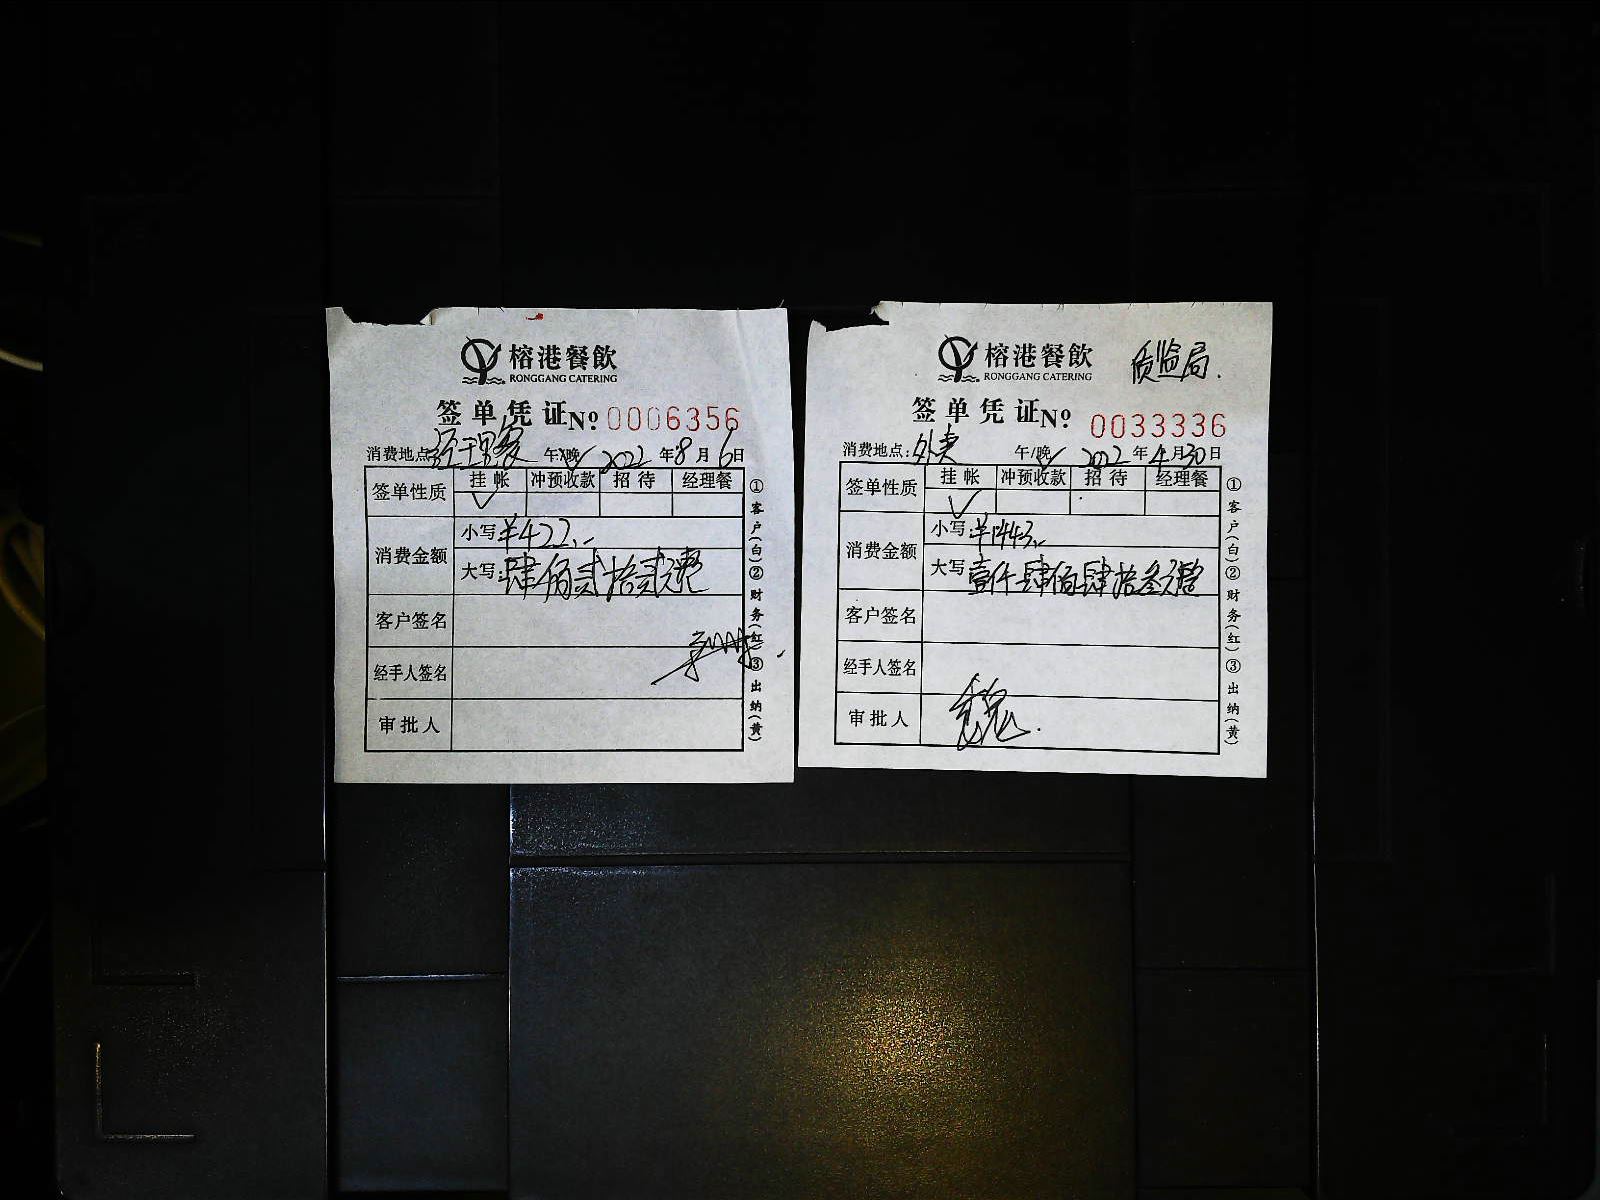 榕港餐飲
RONGGANG CATERING
签单凭证 No 0006356
消费地点: 经理餐 午/晚 2022年8月6日
签单性质 挂帐 冲预收款 招待 经理餐
✓
消费金额 小写: ¥422.-
大写: 肆佰贰拾贰元整
客户签名
经手人签名
审批人
①客户(白)②财务(红)③出纳(黄)
榕港餐飲
RONGGANG CATERING
质监局.
签单凭证 No 0033336
消费地点: 外卖 午/晚 2022年4月30日
签单性质 挂帐 冲预收款 招待 经理餐
✓
消费金额 小写: ¥1443.-
大写: 壹仟肆佰肆拾叁元整
客户签名
经手人签名
审批人 魏.
①客户(白)②财务(红)③出纳(黄)